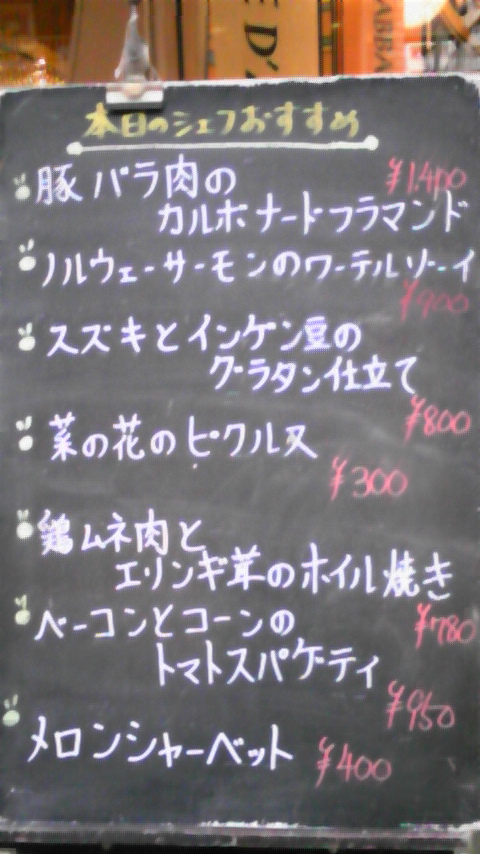 D'
ABBA
本日のシェフおすすめ
豚バラ肉の ¥1,400
カルボナードフラマンド
ノルウェーサーモンのワーテルゾーイ
¥900
スズキとインゲン豆の
グラタン仕立て
¥800
菜の花のピクルス
¥300
鶏ムネ肉と
エリンギ茸のホイル焼き
¥780
ベーコンとコーンの
トマトスパゲティ
¥950
メロンシャーベット ¥400